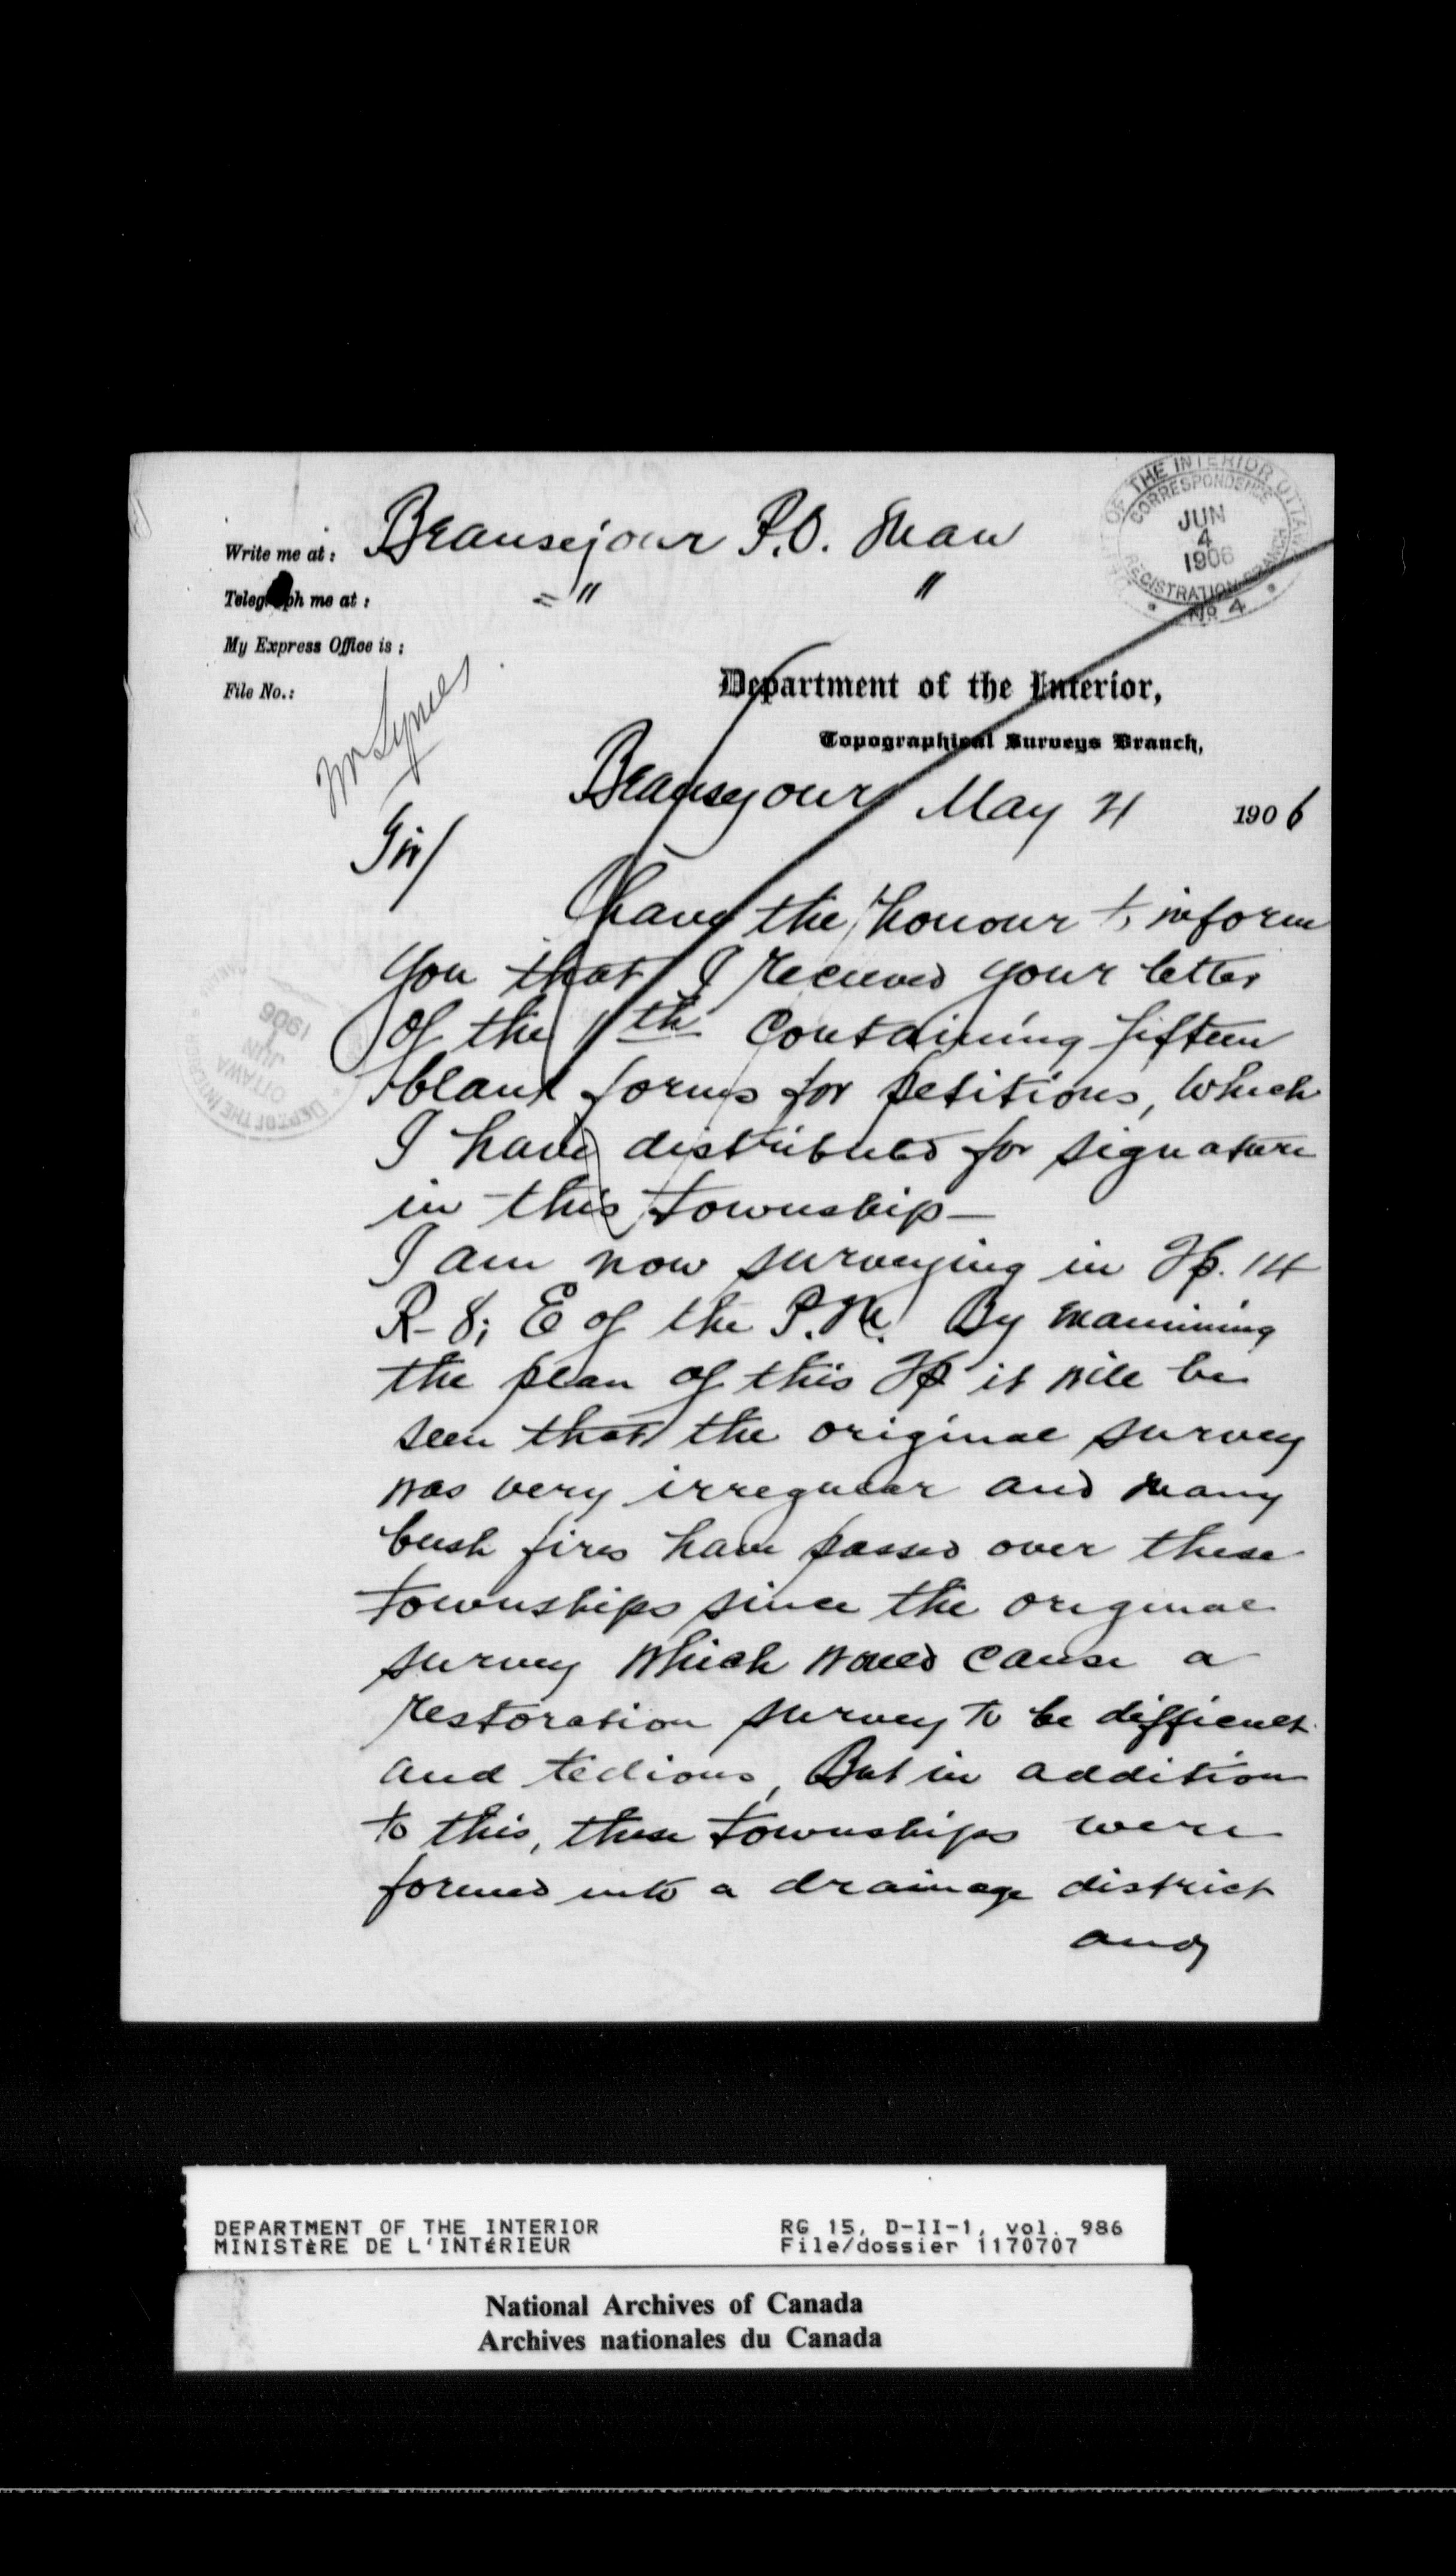 Write me at: Beausejour P.O. Man
Telegraph me at: = " "
My Express Office is:
File No.:
OF THE INTERIOR OTTAWA
CORRESPONDENCE
JUN
4
1906
REGISTRATION BRANCH
No 4
Department of the Interior,
Topographical Surveys Branch,
Beausejour May 1906
Sir/
I have the honour to inform
you that I received your letter
of the containing fifteen
blank forms for petitions, which
I have distributed for signature
in this township—
I am now surveying in Tp. 14
R-8; E of the P.M. By examining
the plan of this Tp it will be
seen that the original survey
was very irregular and many
bush fires have passed over these
townships since the original
survey which would cause a
restoration survey to be difficult
and tedious, But in addition
to this, these townships were
formed into a drainage district
and
DEPT OF THE INTERIOR
OTTAWA
JUN
1906
DEPARTMENT OF THE INTERIOR RG 15, D-II-1, vol. 986
MINISTÈRE DE L'INTÉRIEUR File/dossier 1170707
National Archives of Canada
Archives nationales du Canada